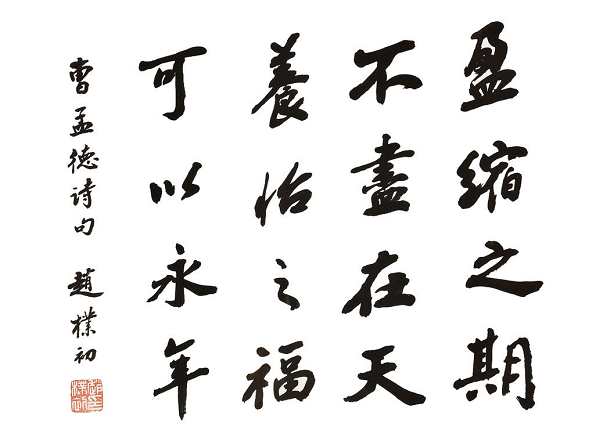 盈縮之期
不盡在天
養怡之福
可以永年
曹孟德诗句 趙樸初
趙樸初